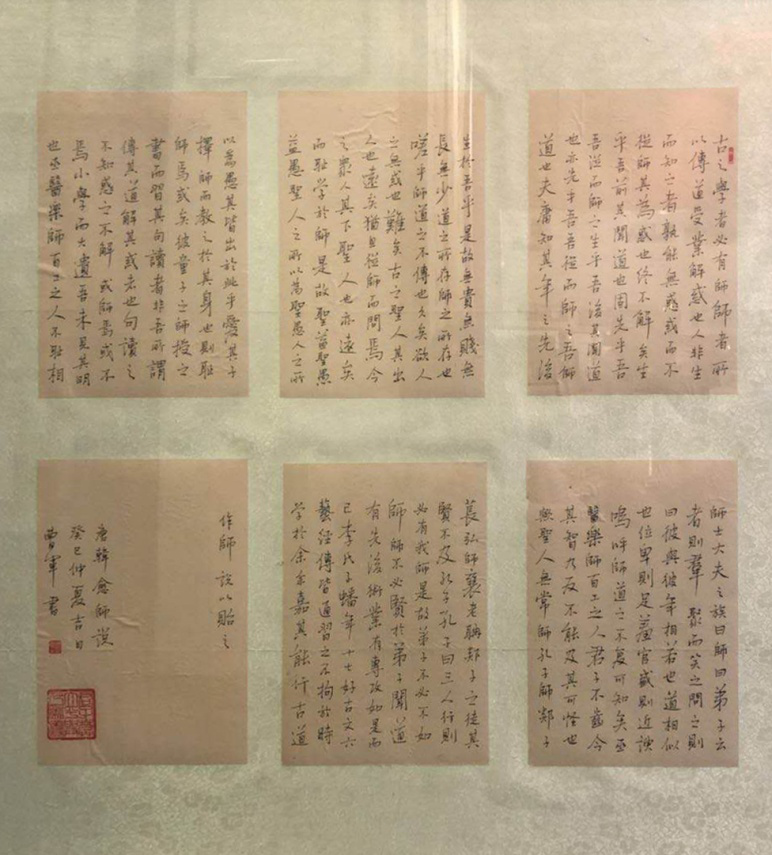 古之學者必有師師者所
以傳道受業解惑也人非生
而知之者孰能無惑惑而不
從師其為惑也終不解矣生
乎吾前其聞道也固先乎吾
吾從而師之生乎吾後其聞道
也亦先乎吾吾從而師之吾師
道也夫庸知其年之先後
生於吾乎是故無貴無賤無
長無少道之所存師之所存也
嗟乎師道之不傳也久矣欲人
之無惑也難矣古之聖人其出
人也遠矣猶且從師而問焉今
之眾人其下聖人也亦遠矣
而恥學於師是故聖益聖愚
益愚聖人之所以為聖愚人之所
以為愚其皆出於此乎愛其子
擇師而教之於其身也則恥
師焉或矣彼童子之師授之
書而習其句讀者非吾所謂
傳其道解其惑者也句讀之
不知惑之不解或師焉或不
焉小學而大遺吾未見其明
也巫醫樂師百工之人不恥相
師士大夫之族曰師曰弟子云
者則群聚而笑之問之則
曰彼與彼年相若也道相似
也位卑則足羞官盛則近諛
嗚呼師道之不復可知矣巫
醫樂師百工之人君子不齒今
其智乃反不能及其可怪也
聖人無常師孔子師郯子
萇弘師襄老聃郯子之徒其
賢不及孔子孔子曰三人行則
必有我師是故弟子不必不如
師師不必賢於弟子聞道
有先後術業有專攻如是而
已李氏子蟠年十七好古文六
藝經傳皆通習之不拘於時
學於余余嘉其能行古道
作師說以貽之
唐韓愈師說
癸巳仲夏吉日
曹軍書